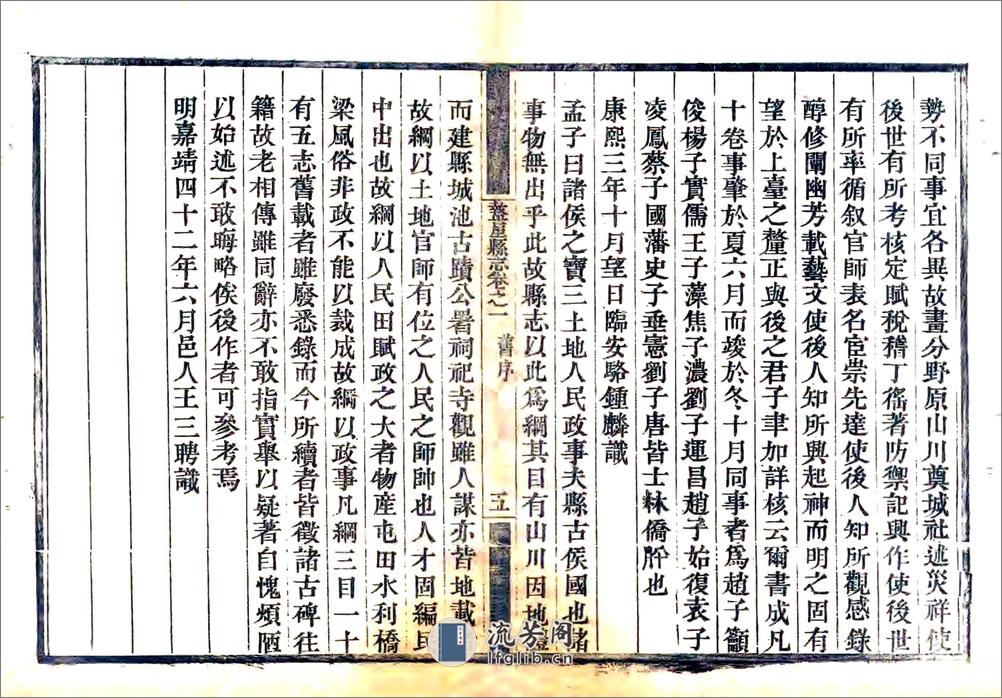 勢不同事宜各異故畫分野原山川奠城社述災祥使
後世有所考核定賦稅稽丁徭著防禦記興作使後世
有所率循叙官師表名宦崇先達使後人知所觀感錄
醇修闡幽芳載藝文使後人知所興起神而明之固有
望於上臺之釐正與後之君子聿加詳核云爾書成凡
十卷事肇於夏六月而竣於冬十月同事者爲趙子籲
俊楊子實儒王子藻焦子濃劉子運昌趙子始復袁子
凌鳳蔡子國藩史子垂憲劉子唐皆士林僑肸也
康熙三年十月望日臨安駱鍾麟識
孟子曰諸侯之寶三土地人民政事夫縣古侯國也諸
事物無出乎此故縣志以此爲綱其目有山川因地
盩厔縣志卷之一 舊序 五
而建縣城池古蹟公署祠祀寺觀雖人謀亦皆地載
故綱以土地官師有位之人民之師帥也人才固編民
中出也故綱以人民田賦政之大者物産屯田水利橋
梁風俗非政不能以裁成故綱以政事凡綱三目一十
有五志舊載者雖廢悉錄而今所續者皆徵諸古碑往
籍故老相傳雖同辭亦不敢指實舉以疑著自愧煩陋
以始述不敢晦略俟後作者可參考焉
明嘉靖四十二年六月邑人王三聘識
流芳阁
lfglib.cn